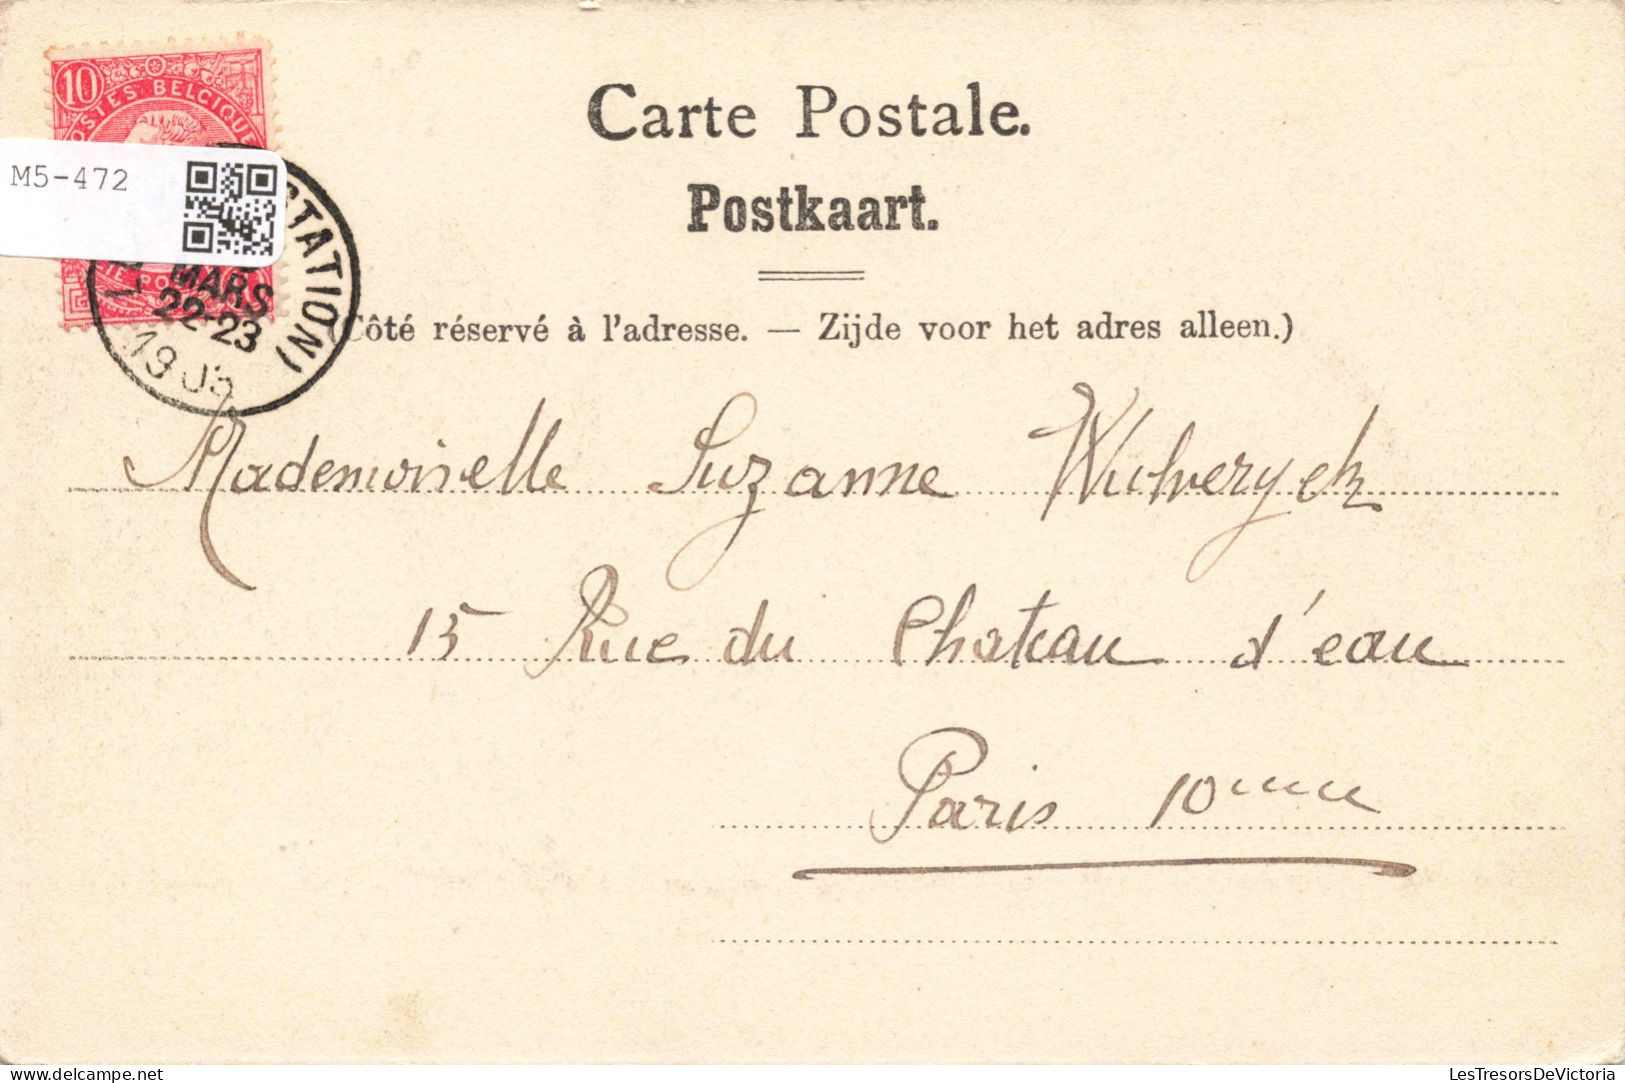 10
POSTES BELGIQUE
M5-472
STATION)
MARS
22-23
190
Carte Postale.
Postkaart.
Côté réservé à l'adresse. — Zijde voor het adres alleen.)
Mademoiselle Suzanne Wulveryck
15 Rue du Chateau d'eau
Paris 10eme
delcampe.net
LesTresorsDeVictoria